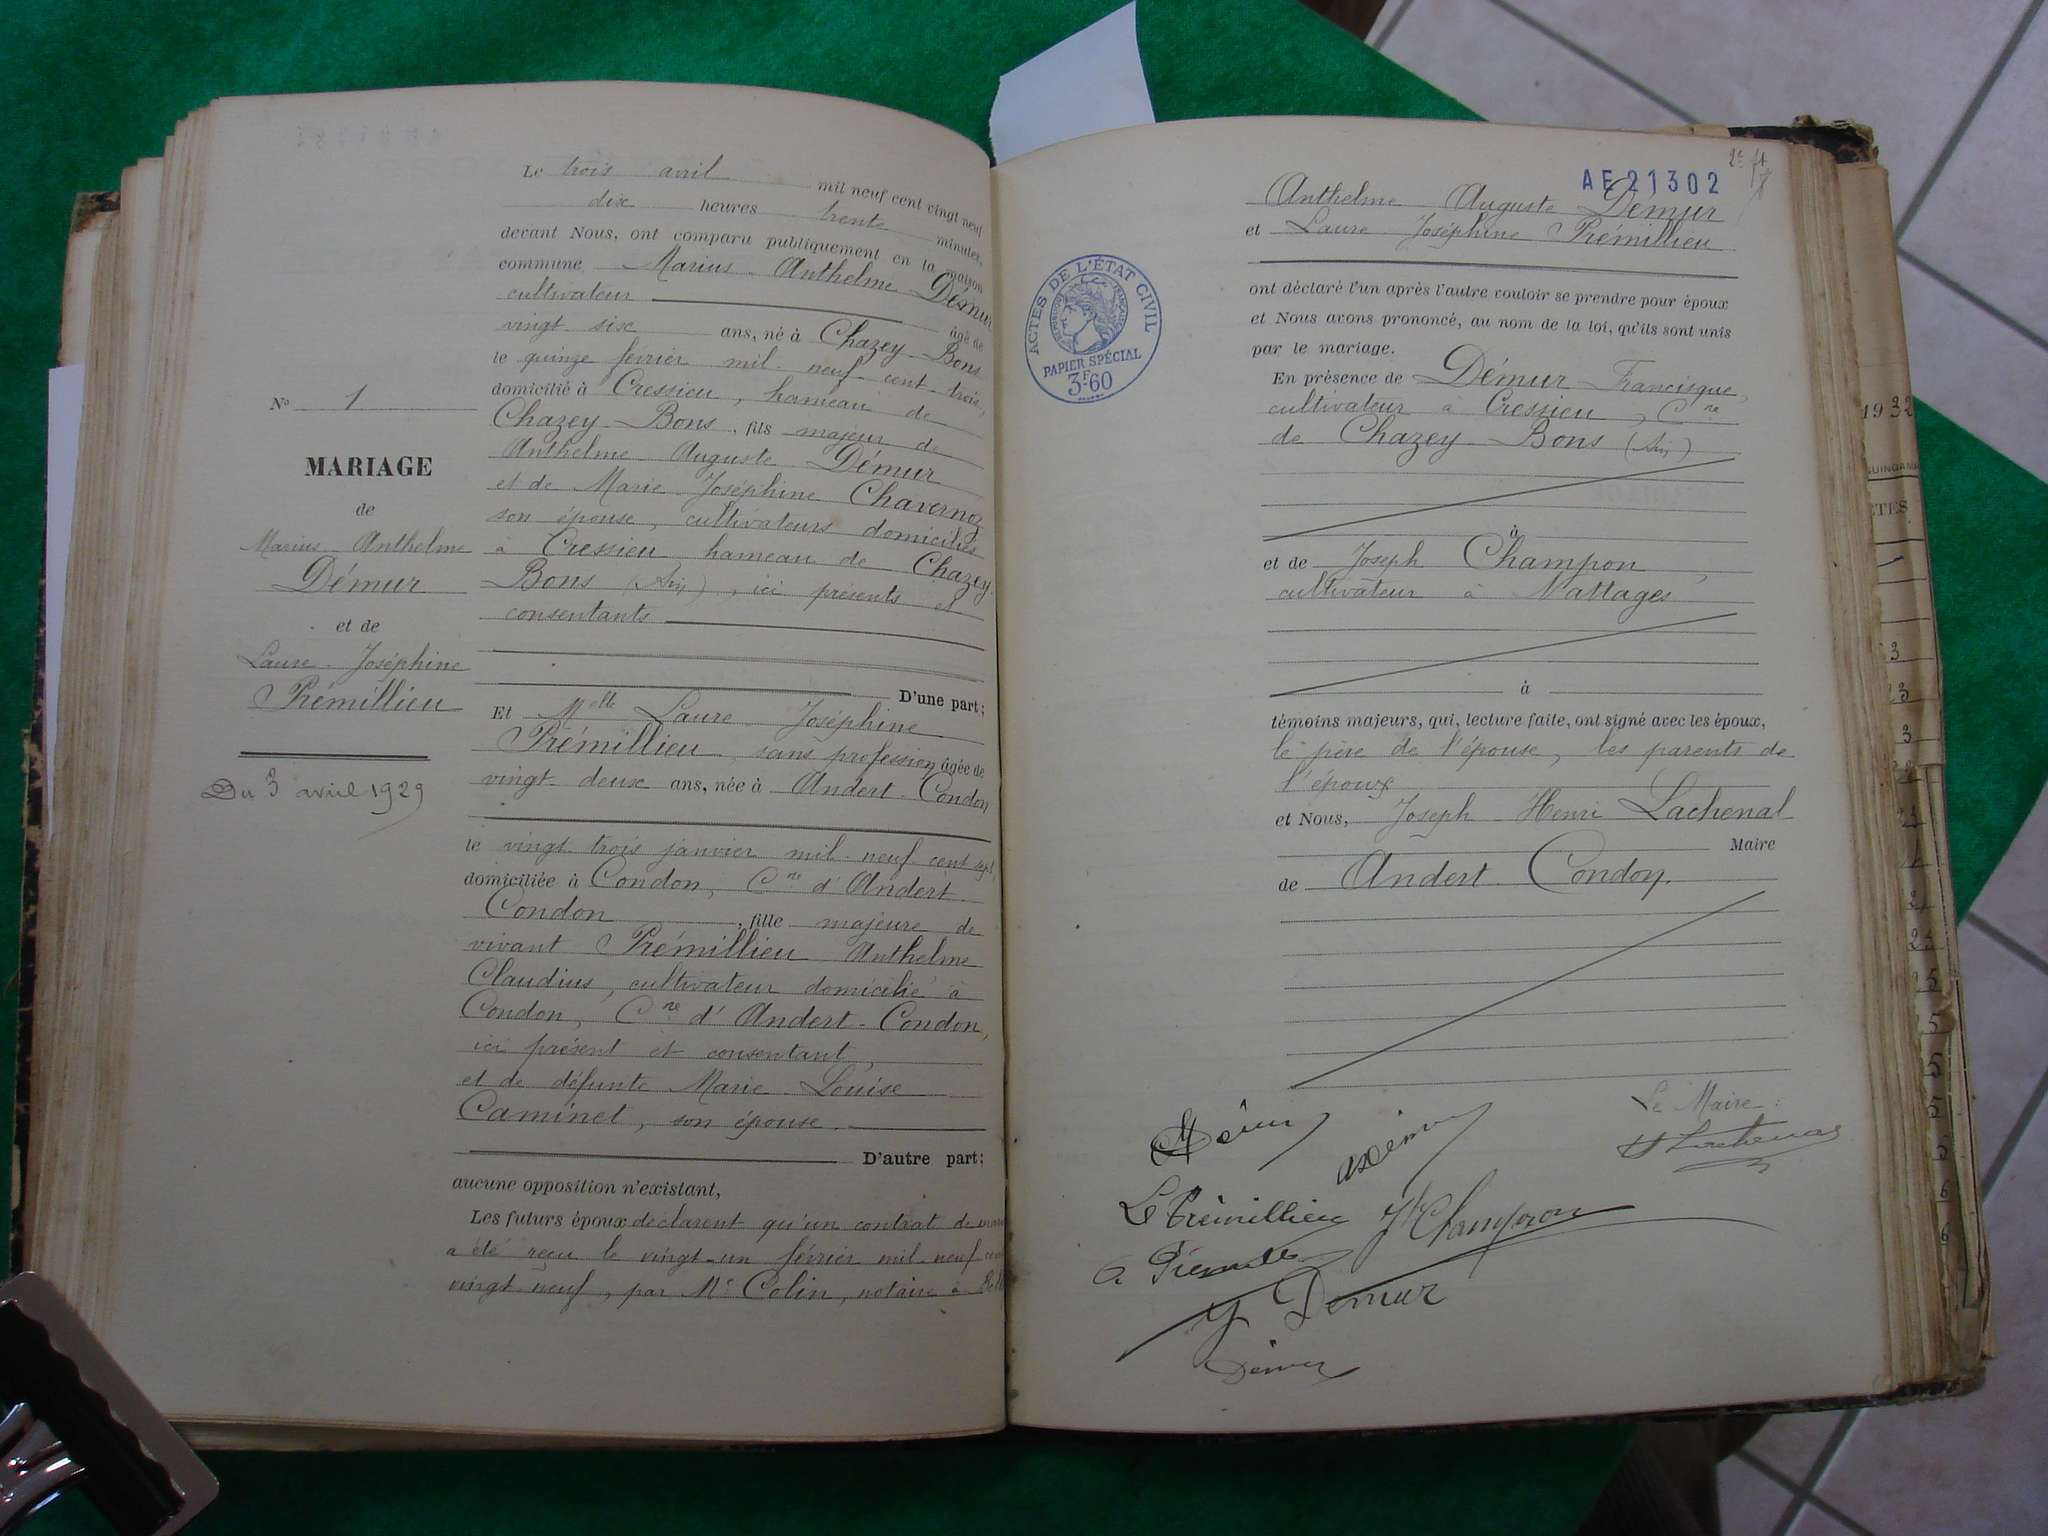 Le trois avril mil neuf cent vingt neuf
dix heures trente minutes,
devant Nous, ont comparu publiquement en la maison
commune Marius Anthelme Démur
cultivateur âgé de
vingt six ans, né à Chazey-Bons
le quinze février mil neuf cent trois,
domicilié à Cressieu, hameau de
Chazey-Bons, fils majeur de
Anthelme Auguste Démur
et de Marie Joséphine Chavernoz
son épouse, cultivateurs domiciliés
à Cressieu hameau de Chazey-
Bons (Ain), ici présents et
consentants
D'une part;
Et Melle Laure Joséphine
Prémillieu, sans profession âgée de
vingt deux ans, née à Andert-Condon
le vingt trois janvier mil neuf cent sept,
domiciliée à Condon, Cne d'Andert
Condon, fille majeure de
vivant Prémillieu Anthelme
Claudius, cultivateur domicilié à
Condon, Cne d'Andert-Condon,
ici présent et consentant,
et de défunte Marie Louise
Caminet, son épouse.
D'autre part;
aucune opposition n'existant,
Les futurs époux déclarent qu'un contrat de
a été reçu le vingt-un février mil neuf
vingt neuf, par Me Colin, notaire à
No 1
MARIAGE
de
Marius Anthelme
Démur
et de
Laure Joséphine
Prémillieu
Du 3 avril 1929
AE21302
Anthelme Auguste Démur
et Laure Joséphine Prémillieu
ACTES DE L'ÉTAT CIVIL
RÉPUBLIQUE FRANÇAISE
PAPIER SPÉCIAL
3F60
ont déclaré l'un après l'autre vouloir se prendre pour époux
et Nous avons prononcé, au nom de la loi, qu'ils sont unis
par le mariage.
En présence de Démur Francisque,
cultivateur à Cressieu, Cne
de Chazey-Bons (Ain)
à
et de Joseph Champon,
cultivateur à Nattages
à
témoins majeurs, qui, lecture faite, ont signé avec les époux,
le père de l'épouse, les parents de
l'époux
et Nous, Joseph Henri Lachenal
Maire
de Andert Condon.
Le Maire:
H Lachenal
Démur
Démur
L Prémillieu
Jh Champon
Démur
Démur
1932